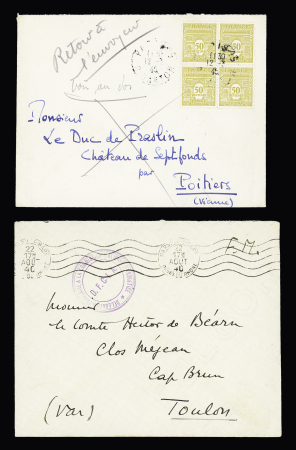 Retour à
l'envoyeur
50 50
50 50
Monsieur
Le Duc de Praslin
Château de Septfonds
par
Poitiers
(Vienne)
22
17H
AOUT
46
F.M.
Monsieur
le Comte Hector de Béarn
Clos Méjean
Cap Brun
(Var) Toulon